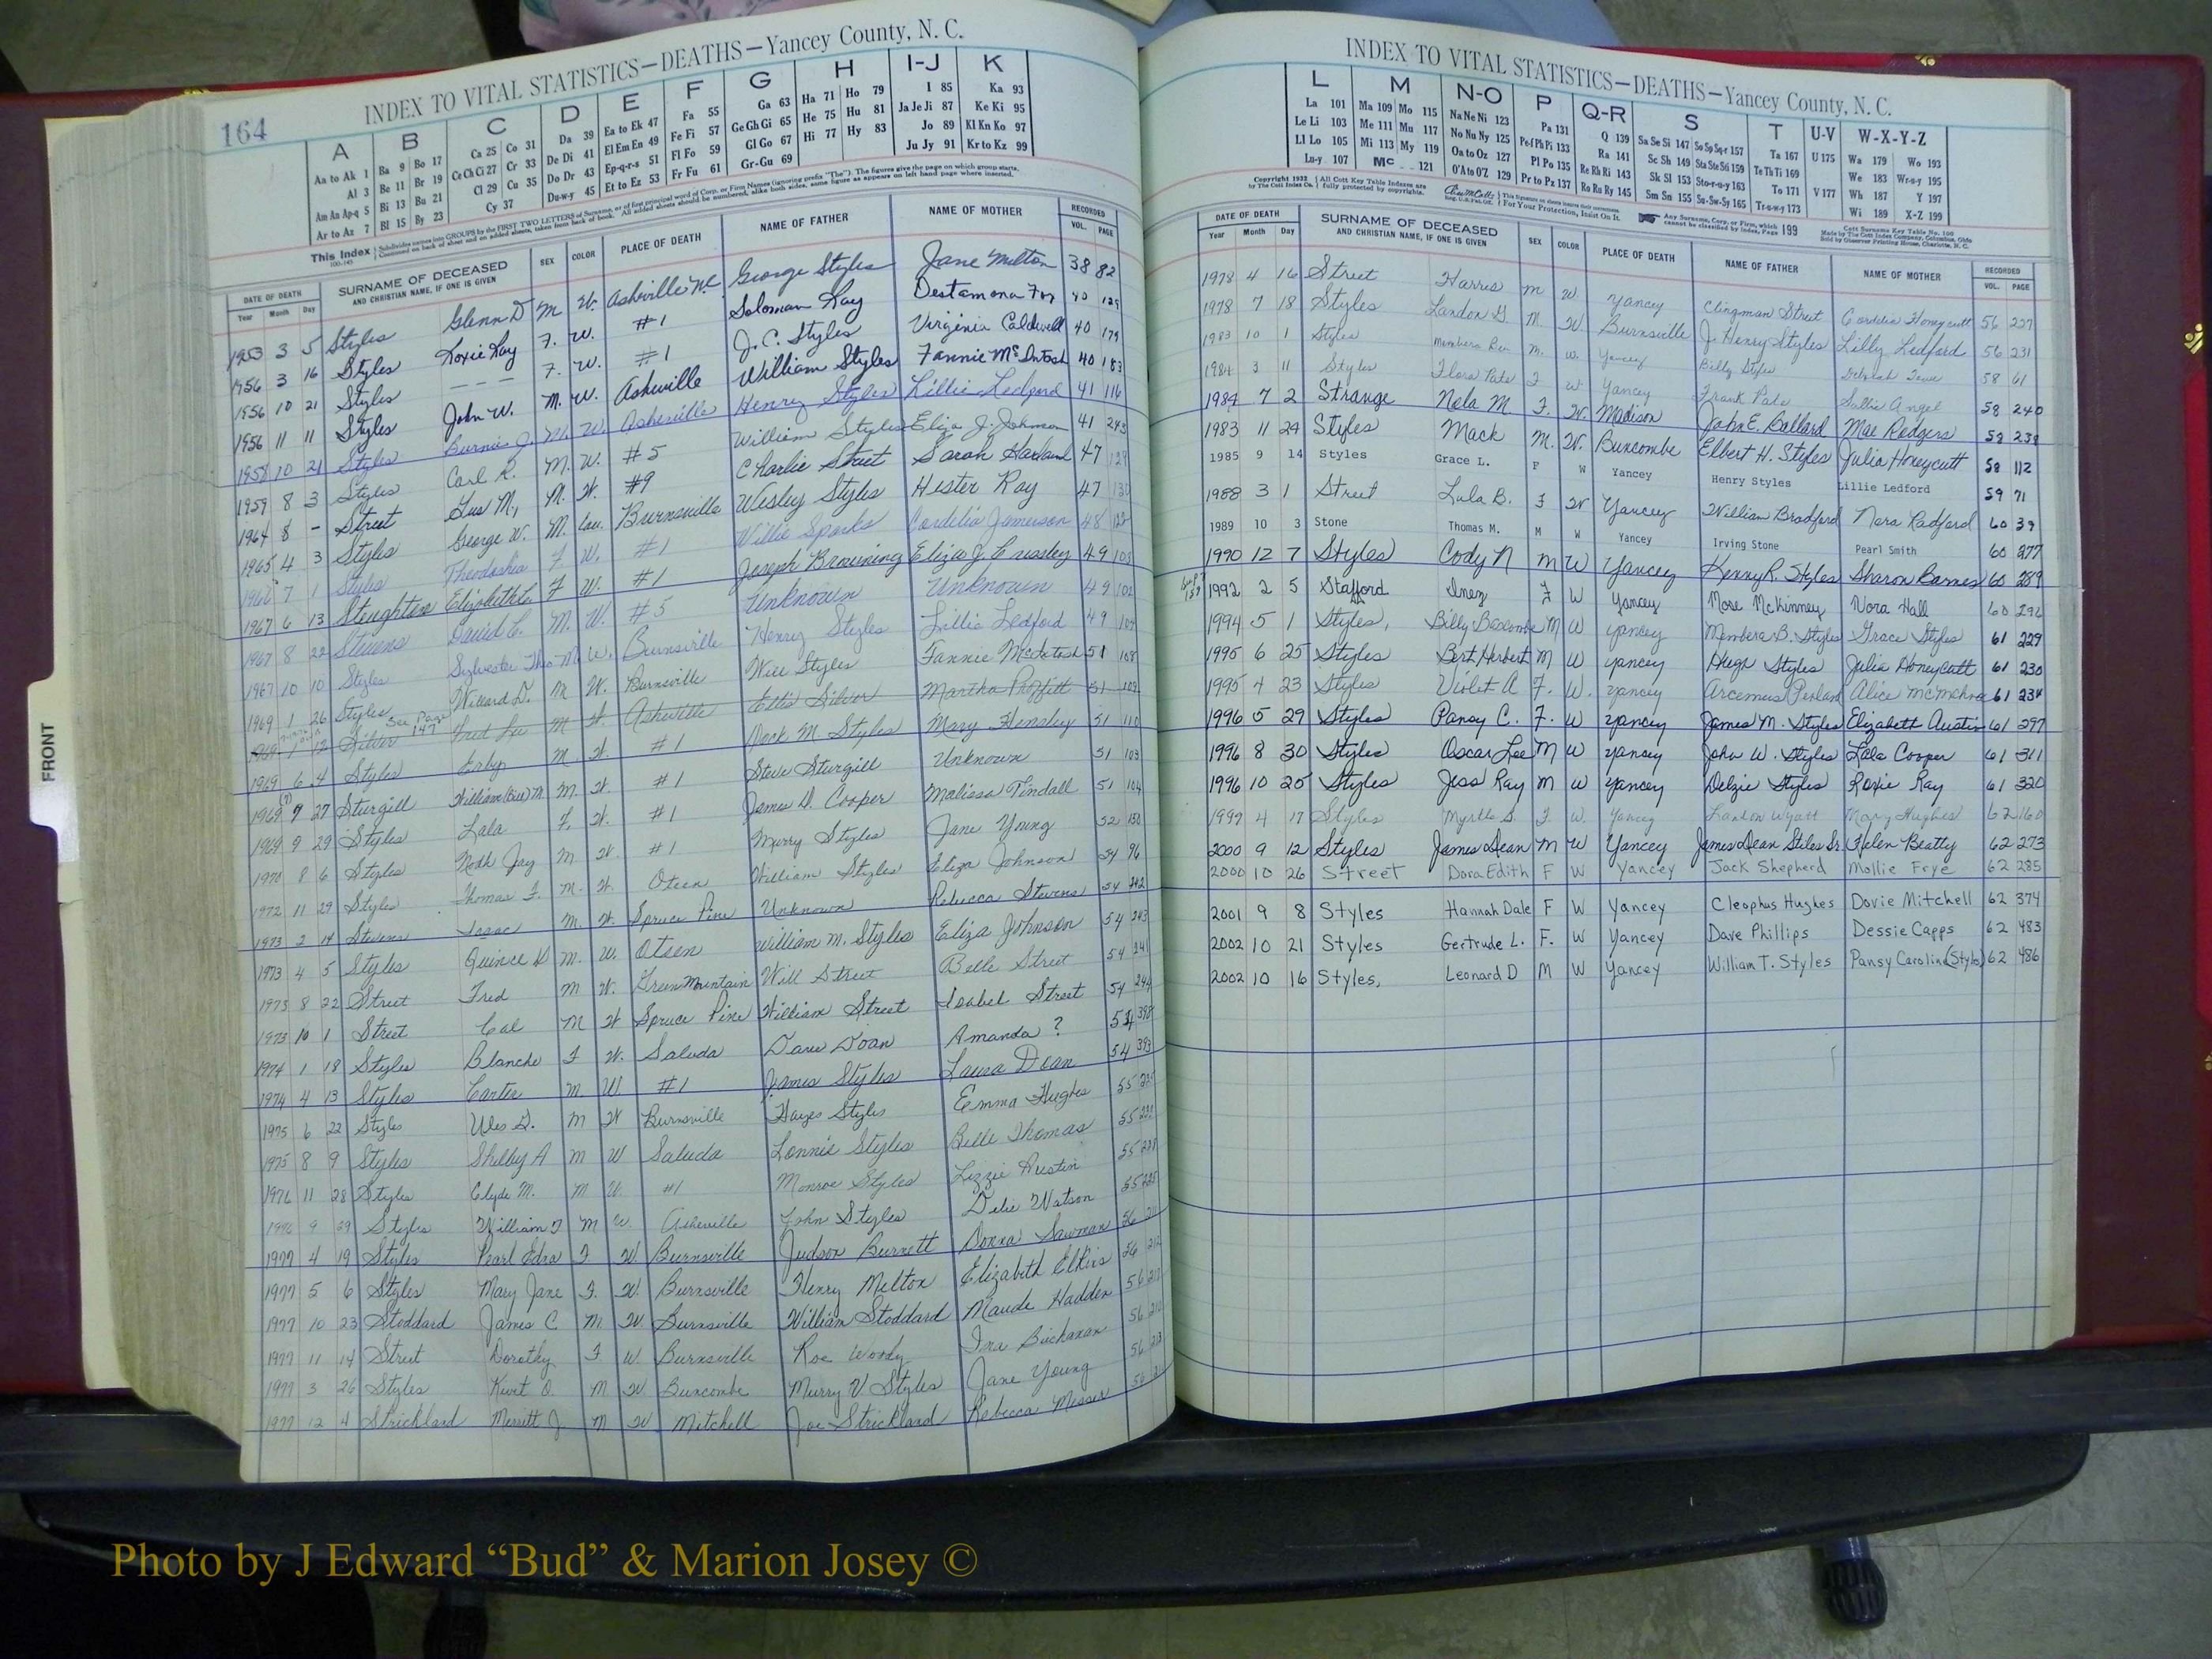 164
INDEX TO VITAL STATISTICS—DEATHS—Yancey County, N. C.
A B C D E F G H I-J K
Aa to Ak 1 Ba 9 Bo 17 Ca 25 Co 31 Da 39 Ea to Ek 47 Fa 55 Ga 63 Ha 71 Ho 79 I 85 Ka 93
Al 3 Be 11 Br 19 Ce Ch Ci 27 Cr 33 De Di 41 El Em En 49 Fe Fi 57 Ge Gh Gi 65 He 75 Hu 81 Ja Je Ji 87 Ke Ki 95
Am An Ap-q 5 Bi 13 Bu 21 Cl 29 Cu 35 Do Dr 43 Ep-q-r-s 51 Fl Fo 59 Gl Go 67 Hi 77 Hy 83 Jo 89 Kl Kn Ko 97
Ar to Az 7 Bl 15 By 23 Cy 37 Du-w-y 45 Et to Ez 53 Fr Fu 61 Gr-Gu 69 Ju Jy 91 Kr to Kz 99
This Index
DATE OF DEATH SURNAME OF DECEASED AND CHRISTIAN NAME, IF ONE IS GIVEN SEX COLOR PLACE OF DEATH NAME OF FATHER NAME OF MOTHER RECORDED
Year Month Day VOL. PAGE
1953 3 5 Styles Glenn D M W. Asheville N.C George Styles Jane Melton 38 82
1956 3 16 Styles Roxie Ray F. W. #1 Soloman Ray Destamona Fox 40 125
1956 10 21 Styles — — — F. W. #1 J.C. Styles Virginia Caldwell 40 179
1956 11 11 Styles John W. M. W. Asheville William Styles Fannie McIntosh 40 183
1958 10 21 Styles Burnie J. M. W. Asheville Henry Styles Lillie Ledford 41 116
1959 8 3 Styles Carl R. M. W. #5 William Styles Eliza J. Johnson 41 243
1964 8 - Street Gus M., M. W. #9 Charlie Street Sarah Harland 47 129
1965 4 3 Styles George W. M. Cau. Burnsville Wesley Styles Hester Ray 47 130
1966 7 1 Styles Theodoshia F W. #1 Willie Sparks Cordelia Jamerson 48 122
1967 6 13 Stoughton Elizabeth C. F W. #1 Joseph Browning Eliza J. Crussley 49 103
1967 8 22 Stevens David C. M. W. #5 Unknown Unknown 49 102
1967 10 10 Styles Sylvester Theo M W. Burnsville Henry Styles Lillie Ledford 49 104
1969 1 26 Styles Willard D. M W. Burnsville Will Styles Fannie McIntosh 51 108
1969 1 12 Silver See Page 147 Fred Lee M W. Asheville Ellis Silver Martha Proffitt 51 109
1969 6 4 Styles Erby M. W. #1 Mock M. Styles Mary Hensley 51 110
1969 9 27 Sturgill William (Bill) M M. W. #1 Steve Sturgill Unknown 51 103
1969 9 29 Styles Lala F. W. #1 James D. Cooper Malissa Tindall 51 104
1970 8 6 Styles Noah Jay M W. #1 Murry Styles Jane Young 52 150
1972 11 29 Styles Thomas F. M. W. Oteen William Styles Eliza Johnson 54 96
1973 2 14 Stevens Isaac M. W. Spruce Pine Unknown Rebecca Stevens 54 242
1973 4 5 Styles Quince D M. W. Oteen William M. Styles Eliza Johnson 54 243
1973 8 22 Street Fred M W. Green Mountain Will Street Belle Street 54 241
1973 10 1 Street Cal M W Spruce Pine William Street Isabel Street 54 244
1974 1 18 Styles Blanche F W. Saluda Dave Doan Amanda ? 54 398
1974 4 13 Styles Carter M. W. #1 James Styles Laura Dean 54 393
1975 6 22 Styles Wes D. M W Burnsville Hayes Styles Emma Hughes 55
1975 8 9 Styles Shelby A M W Saluda Lonnie Styles Belle Thomas 55
1976 11 28 Styles Clyde M. M W. #1 Monroe Styles Lizzie Austin 55
1976 9 29 Styles William T M W. Asheville John Styles Delie Watson 55
1977 4 19 Styles Pearl Edna F W. Burnsville Judson Burnett Donna Sawman 56
1977 5 6 Styles Mary Jane F. W. Burnsville Henry Melton Elizabeth Elkins 56
1977 10 23 Stoddard James C M W Burnsville William Stoddard Maude Hadden 56
1977 11 14 Street Dorothy F W Burnsville Roe Woody Ina Buchanan 56
1977 3 26 Styles Kurt O. M W Buncombe Murry V Styles Jane Young 56
1977 12 4 Strickland Merritt J. M W Mitchell Joe Strickland Rebecca Messer 56
FRONT
INDEX TO VITAL STATISTICS—DEATHS—Yancey County, N. C.
L M N-O P Q-R S T U-V W-X-Y-Z
La 101 Ma 109 Mo 115 Na Ne Ni 123 Pa 131 Q 139 Sa Se Si 147 So Sp Sq-r 157 Ta 167 U 175 Wa 179 Wo 193
Le Li 103 Me 111 Mu 117 No Nu Ny 125 Pe-f Ph Pi 133 Ra 141 Sc Sh 149 Sta Ste Sti 159 Te Th Ti 169 We 183 Wr-u-y 195
Ll Lo 105 Mi 113 My 119 Oa to Oz 127 Pl Po 135 Re Rh Ri 143 Sk Sl 153 Sto-r-u-y 163 To 171 V 177 Wh 187 Y 197
Lu-y 107 Mc 121 O'A to O'Z 129 Pr to Pz 137 Ro Ru Ry 145 Sm Sn 155 Su-Sw-Sy 165 Tr-u-w-y 173 Wi 189 X-Z 199
DATE OF DEATH SURNAME OF DECEASED AND CHRISTIAN NAME, IF ONE IS GIVEN SEX COLOR PLACE OF DEATH NAME OF FATHER NAME OF MOTHER RECORDED
Year Month Day VOL. PAGE
1978 4 16 Street Harris M W. Yancey Clingman Street Cordelia Honeycutt 56 227
1978 7 18 Styles Landon G. M. W. Burnsville J. Henry Styles Lilly Ledford 56 231
1983 10 1 Styles Membera M. W. Yancey Billy Styles 58 61
1984 3 11 Styles Flora Pate F W Yancey Frank Pate Sallie Angel 58 240
1984 7 2 Strange Nola M F. W. Madison John E. Ballard Mae Rodgers 58 239
1983 11 24 Styles Mack M. W. Buncombe Elbert H. Styles Julia Honeycutt 58 112
1985 9 14 Styles Grace L. F W Yancey Henry Styles Lillie Ledford 59 71
1988 3 1 Street Lula B. F W Yancey William Bradford Nora Radford 60 39
1989 10 3 Stone Thomas M. M W Yancey Irving Stone Pearl Smith 60 277
1990 12 7 Styles Cody N M W Yancey Kenny R. Styles Sharon Barnes 60 289
1992 2 5 Stafford Inez F W Yancey Mose McKinney Nora Hall 60 296
1994 5 1 Styles, Billy Bascombe M W Yancey Membera B. Styles Grace Styles 61 229
1995 6 25 Styles Bert Herbert M W Yancey Hugh Styles Julia Honeycutt 61 230
1995 4 23 Styles Violet A F. W. Yancey Arcemus Penland Alice McMahan 61 234
1996 5 29 Styles Pansy C. F. W Yancey James M. Styles Elizabeth Austin 61 297
1996 8 30 Styles Oscar Lee M W Yancey John W. Styles Lala Cooper 61 311
1996 10 25 Styles Jess Ray M W Yancey Delzie Styles Roxie Ray 61 320
1999 4 17 Styles Myrtle S. F. W. Yancey Landon Wyatt Mary Hughes 62 160
2000 9 12 Styles James Dean M W Yancey James Dean Stiles Sr. Helen Beatty 62 273
2000 10 26 Street Dora Edith F W Yancey Jack Shepherd Mollie Frye 62 285
2001 9 8 Styles Hannah Dale F W Yancey Cleophus Hughes Dovie Mitchell 62 374
2002 10 21 Styles Gertrude L. F. W Yancey Dave Phillips Dessie Capps 62 483
2002 10 16 Styles, Leonard D M W Yancey William T. Styles Pansy Caroline (Styles) 62 486
Photo by J Edward “Bud” & Marion Josey ©